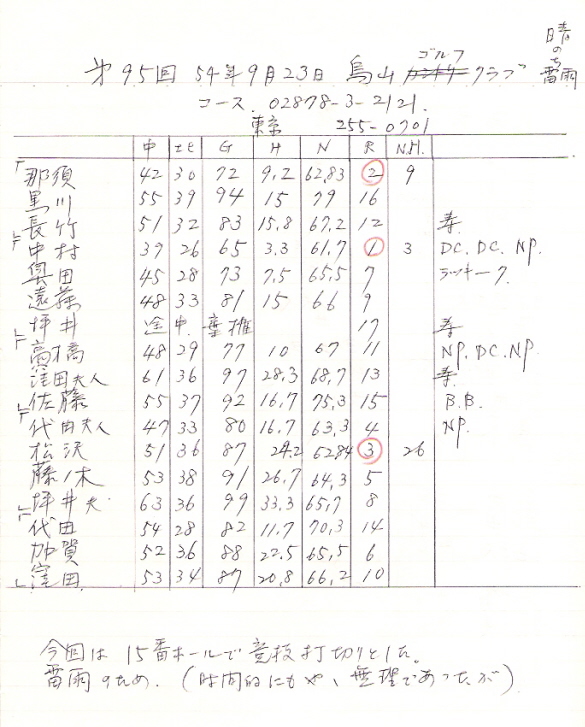 晴のち雷雨
第95回 54年9月23日 烏山 ゴルフ クラブ
コース. 02878-3-2121.
東京 255-0701
中 ェヒ G H N R N.H.
那須 42 30 72 9.2 62.83 2 9
黒川 55 39 94 15 79 16
長竹 51 32 83 15.8 67.2 12 寿
中村 39 26 65 3.3 61.7 1 3 DC. DC. NP.
奥田 45 28 73 7.5 65.5 7 ラッキー7.
遠藤 48 33 81 15 66 9
坪井 途中棄権 17 寿
高橋 48 29 77 10 67 11 NP. DC. NP.
窪田夫人 61 36 97 28.3 68.7 13 寿.
佐藤 55 37 92 16.7 75.3 15 B.B.
代田夫人 47 33 80 16.7 63.3 4 NP.
松沢 51 36 87 24.2 62.84 3 26
藤ノ木 53 38 91 26.7 64.3 5
坪井夫 63 36 99 33.3 65.7 8
代田 54 28 82 11.7 70.3 14
加賀 52 36 88 22.5 65.5 6
窪田 53 34 87 20.8 66.2 10
今回は 15番ホールで競技打切りとした。
雷雨のため. (時間的にもやゝ無理であったが)